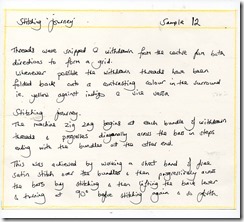 Stitching 'journey'
Sample 12
Threads were snipped & withdrawn from the centre in both
directions to form a grid.
Wherever possible the withdrawn threads have been
folded back onto a contrasting colour in the surround
ie. yellow against indigo & vice versa.
Stitching journey.
The machine zig zag begins at each bundle of withdrawn
threads & progresses diagonally across the bars in steps
ending with the bundles at the other end.
This was achieved by working a short band of
satin stitch over the bundles & then progressively across
the bars by stitching & then lifting the foot lever
& turning at 90° before stitching again & so forth